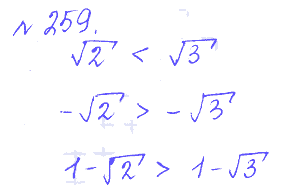 № 259.
√2 < √3
-√2 > -√3
1-√2 > 1-√3